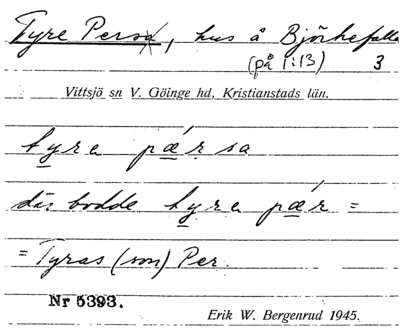 Tyre Persa, hus å Björkefalla
(på 1:13) 3
Vittsjö sn V. Göinge hd, Kristianstads län.
tyra pær sa
där bodde tyra pær =
= Tyras (son) Per.
Nr 5393.
Erik W. Bergenrud 1945.